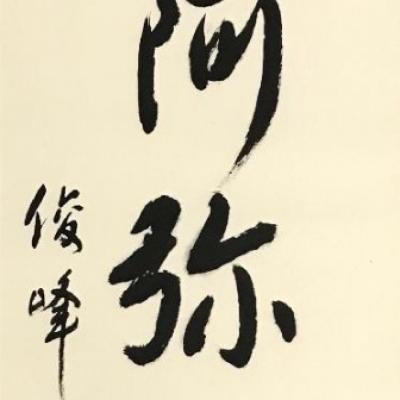 阿弥
俊峰